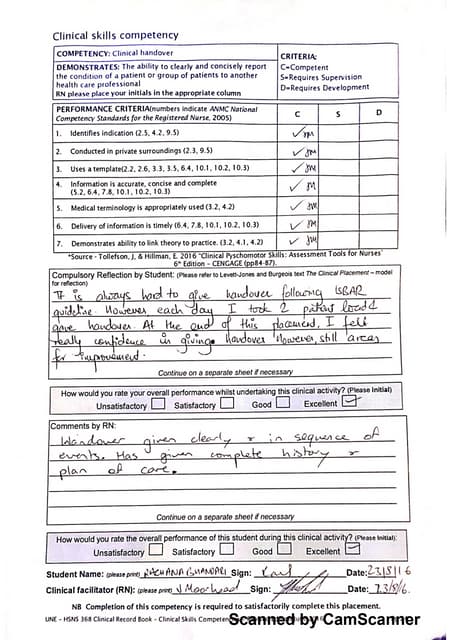 Clinical skills competency
COMPETENCY: Clinical handover
DEMONSTRATES: The ability to clearly and concisely report
the condition of a patient or group of patients to another
health care professional
RN please place your initials in the appropriate column
CRITERIA:
C=Competent
S=Requires Supervision
D=Requires Development
PERFORMANCE CRITERIA(numbers indicate ANMC National
Competency Standards for the Registered Nurse, 2005)
C S D
1. Identifies indication (2.5, 4.2, 9.5) ✓ JM
2. Conducted in private surroundings (2.3, 9.5) ✓ JM
3. Uses a template(2.2, 2.6, 3.3, 3.5, 6.4, 10.1, 10.2, 10.3) ✓ JM
4. Information is accurate, concise and complete
(5.2, 6.4, 7.8, 10.1, 10.2, 10.3) ✓ JM
5. Medical terminology is appropriately used (3.2, 4.2) ✓ JM
6. Delivery of information is timely (6.4, 7.8, 10.1, 10.2, 10.3) ✓ JM
7. Demonstrates ability to link theory to practice. (3.2, 4.1, 4.2) ✓ JM
*Source - Tollefson, J, & Hillman, E. 2016 "Clinical Pyschomotor Skills: Assessment Tools for Nurses'
6th Edition - CENGAGE (pp84-87).
Compulsory Reflection by Student: (Please refer to Levett-Jones and Burgeois text The Clinical Placement – model
for reflection)
It is always hard to give handover following ISBAR
guideline. However each day I took 2 patient load &
gave handover. At the end of this placement, I felt
really confidence in giving handover However, still areas
for improvement.
Continue on a separate sheet if necessary
How would you rate your overall performance whilst undertaking this clinical activity? (Please Initial)
Unsatisfactory Satisfactory Good Excellent ✓
Comments by RN:
Handover given clearly & in sequence of
events. Has given complete history &
plan of care.
Continue on a separate sheet if necessary
How would you rate the overall performance of this student during this clinical activity? (Please Initial)
Unsatisfactory Satisfactory Good Excellent ✓
Student Name: (please print) RACHANA BHANDARI Sign: Date: 23/8/16
Clinical facilitator (RN): (please print) J Moorhead Sign: Date: 23/8/16.
NB Completion of this competency is required to satisfactorily complete this placement.
UNE - HSNS 368 Clinical Record Book - Clinical Skills Compete
Scanned by CamScanner